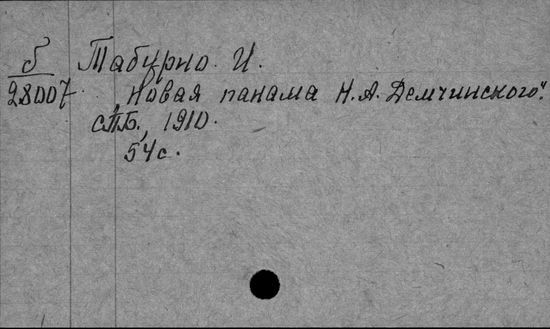 б Табурно. И.
28007 „Новая панама Н.А. Демчинского".
СПБ., 1910.
54с.